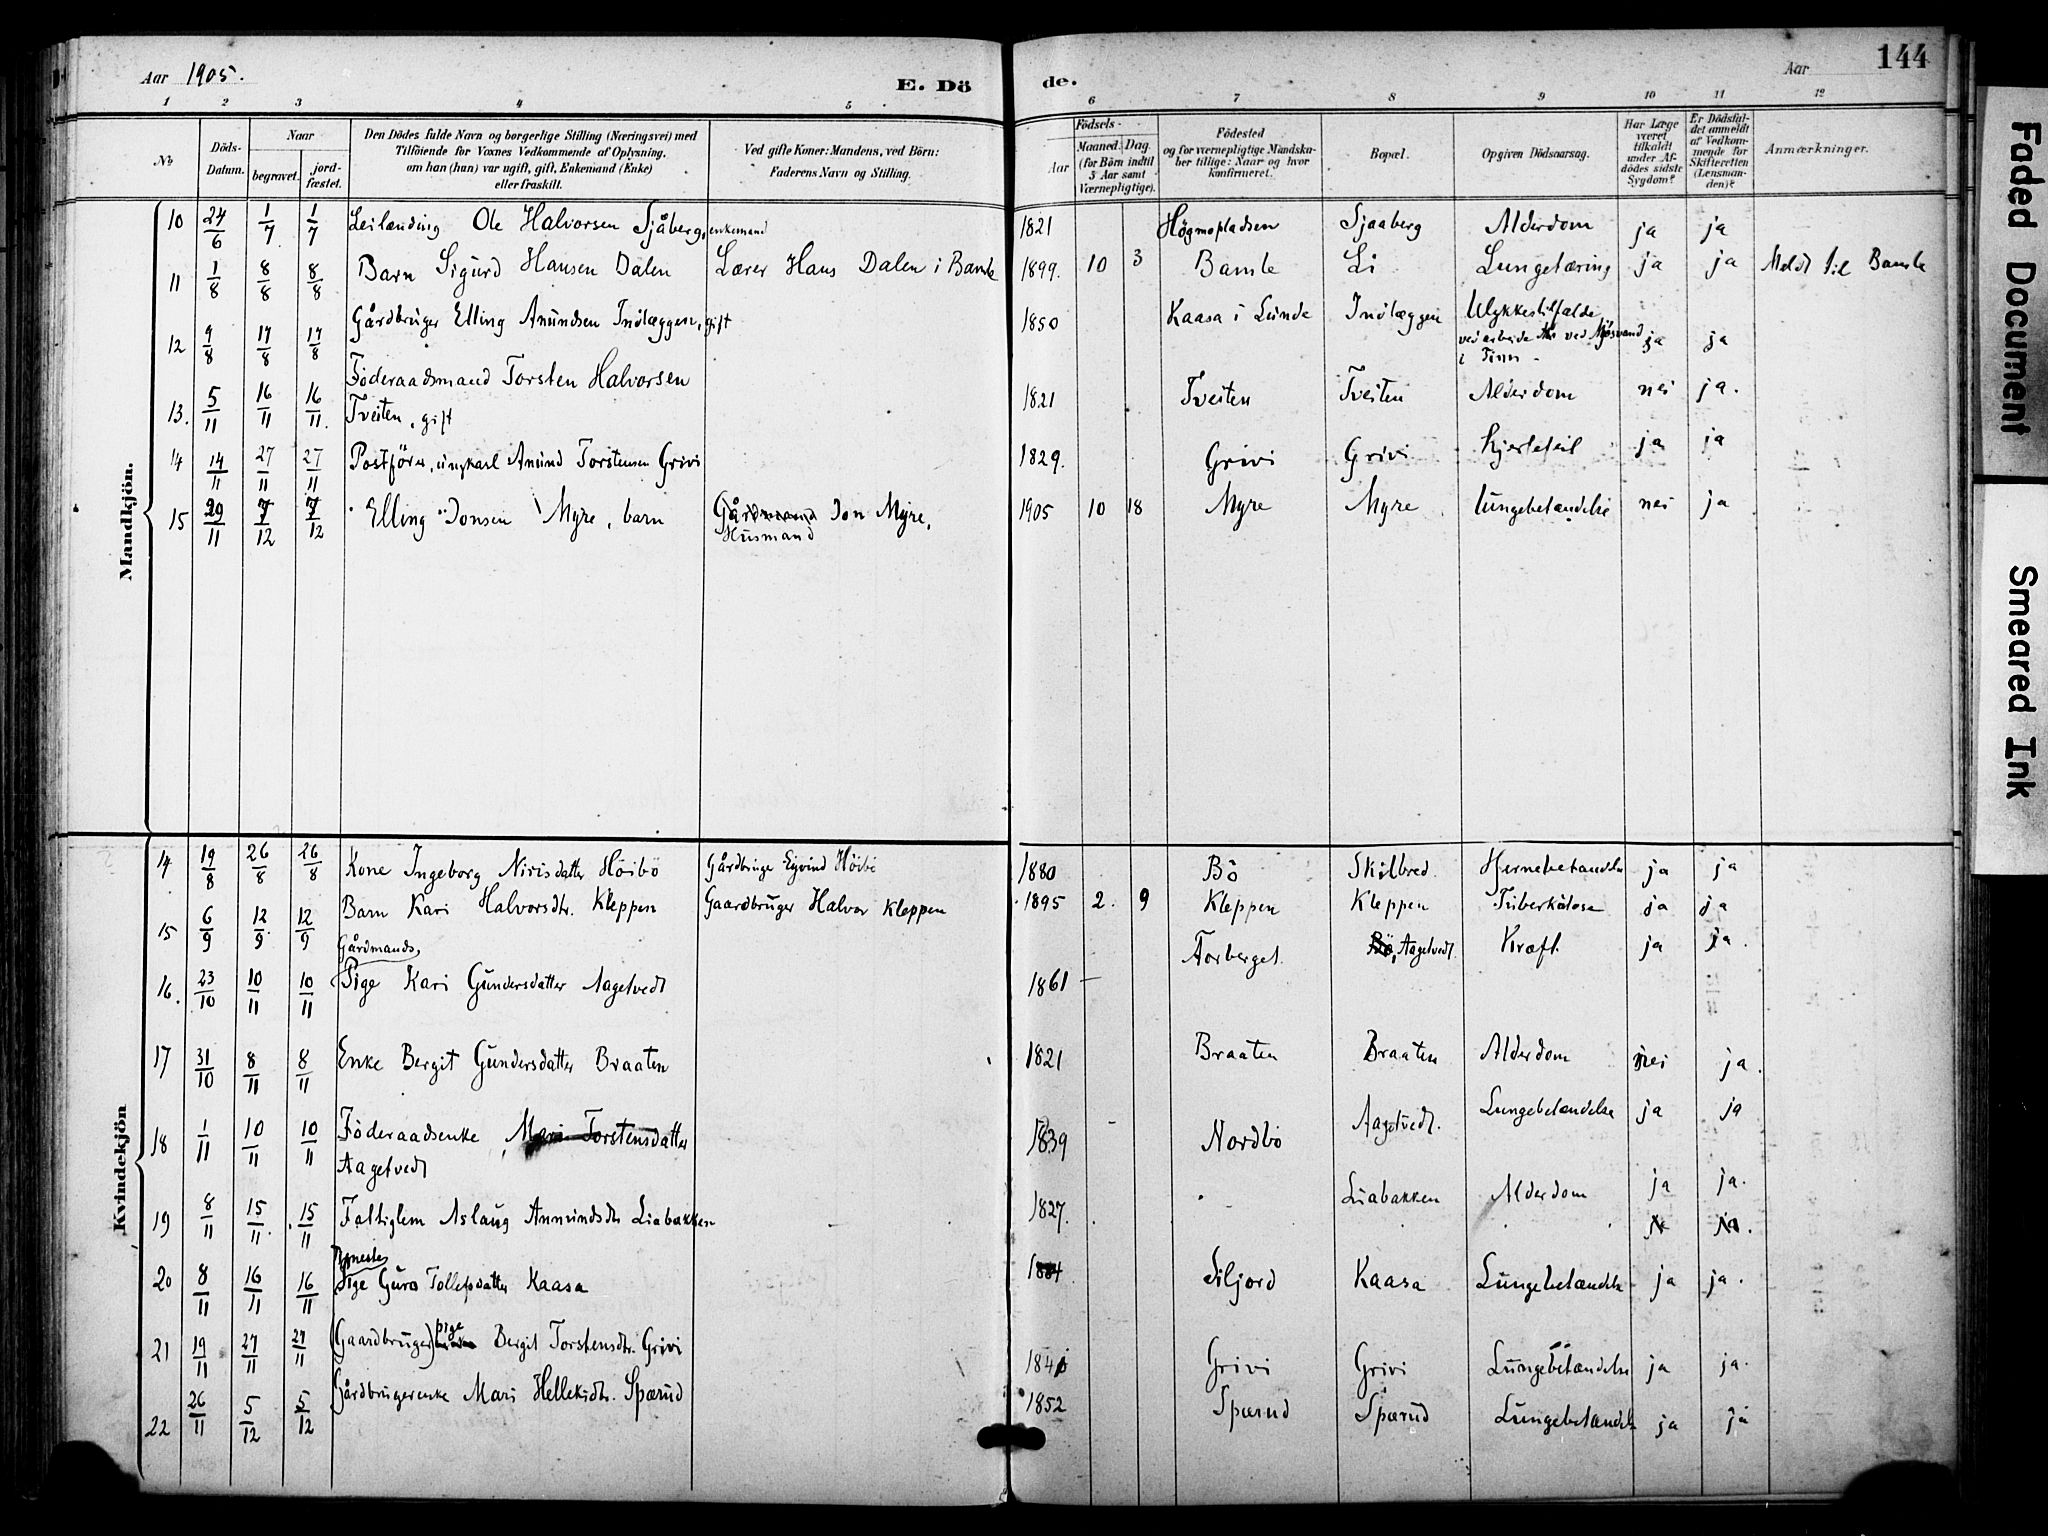 Aar 1905.
E. Dö
de.
Aar
144
1 2 3 4 5 6 7 8 9 10 11 12
No
Döds-Datum.
Naar
begravet.
jord-fæstet.
Den Dödes fulde Navn og borgerlige Stilling (Næringsvei) med
Tilföiende for Voxnes Vedkommende af Oplysning,
om han (hun) var ugift, gift, Enkemand (Enke)
eller fraskilt.
Ved gifte Koner: Mandens, ved Börn:
Faderens Navn og Stilling.
Födsels-
Aar
Maaned. Dag.
(for Börn indtil
3 Aar samt
Værnepligtige).
Födested
og for værnepligtige Mandska-
ber tillige: Naar og hvor
konfirmeret.
Bopæl.
Opgiven Dödsaarsag.
Har Læge
været
tilkaldt
under Af-
dödes sidste
Sygdom?
Er Dödsfal-
det anmeldt
af Vedkom-
mende for
Skifteretten
(Lensman-
den)?
Anmærkninger.
Mandkjön.
10 24/6 1/7 1/7 Leilænding Ole Halvorsen Sjåberg, enkemand 1821 Högmopladsen Sjaaberg Alderdom ja ja
11 1/8 8/8 8/8 Barn Sigurd Hansen Dalen Lærer Hans Dalen i Bamle 1899. 10 3 Bamle Li Lungetæring ja ja Meldt til Bamle
12 9/8 17/8 17/8 Gårdbruger Elling Anundsen Indlæggen, gift 1850 Kaasa i Lunde Indlæggen Ulykkestilfælde
ved arbeide ved Mjösvand
i Tinn - ja ja
13. 5/11 16/11 16/11. Föderaadsmand Torsten Halvorsen
Tveiten, gift 1821 Tveiten Tveiten Alderdom nei ja.
14 14/11 27/11 27/11 Postförer, ungkarl Anund Torstensen Grivi 1829. Grivi Grivi Hjertefeil ja ja
15 29/11 7/12 7/12 Elling Jonsen Myre, barn Gårdmand Jon Myre,
Husmand 1905 10 18 Myre Myre lungebetændelse nei ja
Kvindekjön
14 19/8 26/8 26/8 Kone Ingeborg Nirisdatter Höibö Gårdbruge Eyvind Höibö 1880 Bö Skilbred. Hjernebetændelse ja ja
15 6/9 12/9 12/9 Barn Kari Halvorsdtr. Kleppen Gaardbruger Halvor Kleppen 1895 2. 9 Kleppen Kleppen Tuberkulose ja ja
16. 23/10 10/11 10/11 Gårdmands
Pige Kari Gundersdatter Aagetvedt 1861 Torberget. Bö, Aagetvedt. Kræft ja ja.
17 31/10 8/11 8/11 Enke Bergit Gundersdatter Braaten 1821 Braaten Braaten Alderdom nei ja.
18 1/11 10/11 10/11 Föderaadsenke, Mari Torstensdatter
Aagetvedt 1839 Nordbö Aagetvedt. Lungebetændelse ja ja
19 8/11 15/11. 15/11 Fattiglem Aslaug Annundsdtr Liabakken 1827. Liabakken Alderdom ja ja.
20 8/11 16/11 16/11 Tjeneste
Pige Guro Tollefsdatter Kaasa 1884 Siljord Kaasa Lungebetændelse ja ja.
21 19/11 27/11 27/11 (Gaardbruger) pige Bergit Torstensdtr. Grivi 1846 Grivi Grivi Lungebetændelse ja ja.
22 26/11 5/12 5/12 Gårdbrugerenke Mari Hellekidtr. Spærud 1852 Spærud Spærud Lungebetændelse ja ja
Faded Document
Smeared Ink